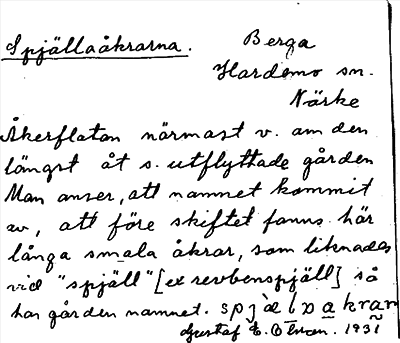 Spjällaåkrarna. Berga
Hardemo sn.
Närke
Åkerflatan närmast v. om den
längst åt s. utflyttade gården
Man anser, att namnet kommit
av, att före skiftet fanns här
långa smala åkrar, som liknades
vid "spjäll" [ex revbenspjäll] så
har gården namnet. spjælɔakrar
Gustaf E. 1931